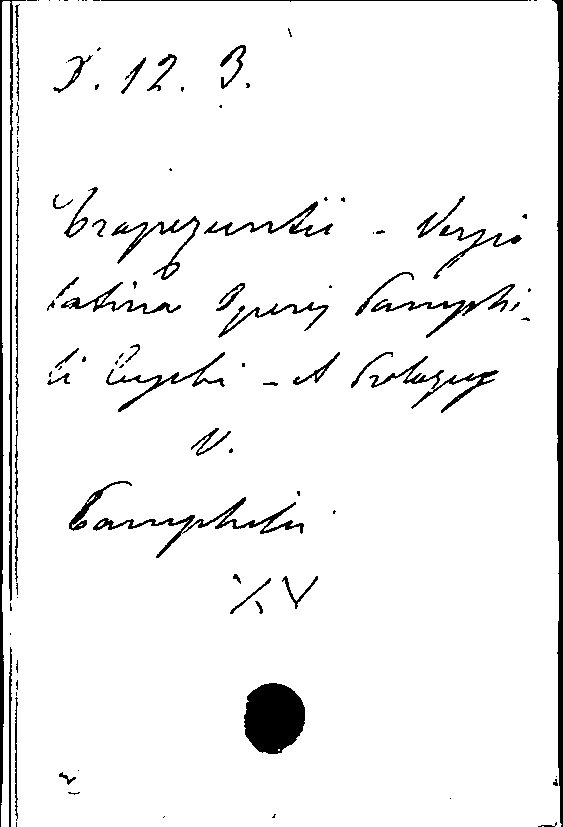 D. 12. 3.
Trapezuntii - Versio
latina Operis Pamphi-
li Eusebii - et Prologus
V.
Pamphilii
XV